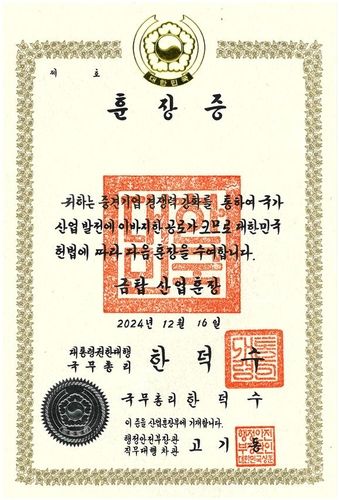 대한민국
제 호
훈장증
귀하는 중견기업 경쟁력 강화를 통하여 국가
산업 발전에 이바지한 공로가 크므로 대한민국
헌법에 따라 다음 훈장을 수여합니다.
금탑 산업훈장
2024년 12월 16일
대통령권한대행
국무총리 한덕수
국무총리 한덕수
이 증을 산업훈장부에 기재합니다.
행정안전부장관
직무대행 차관 고기동